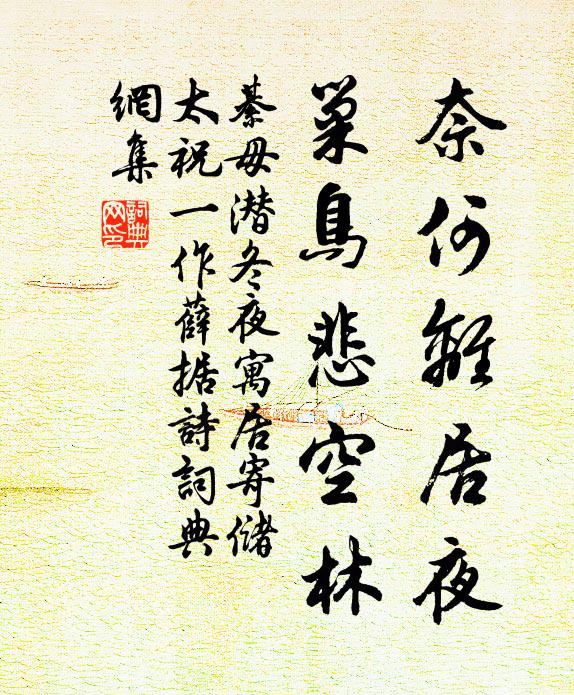 奈何離居夜
巢鳥悲空林
綦毋潛冬夜寓居寄儲
太祝一作薛據詩詞典
網集
詞典
网印